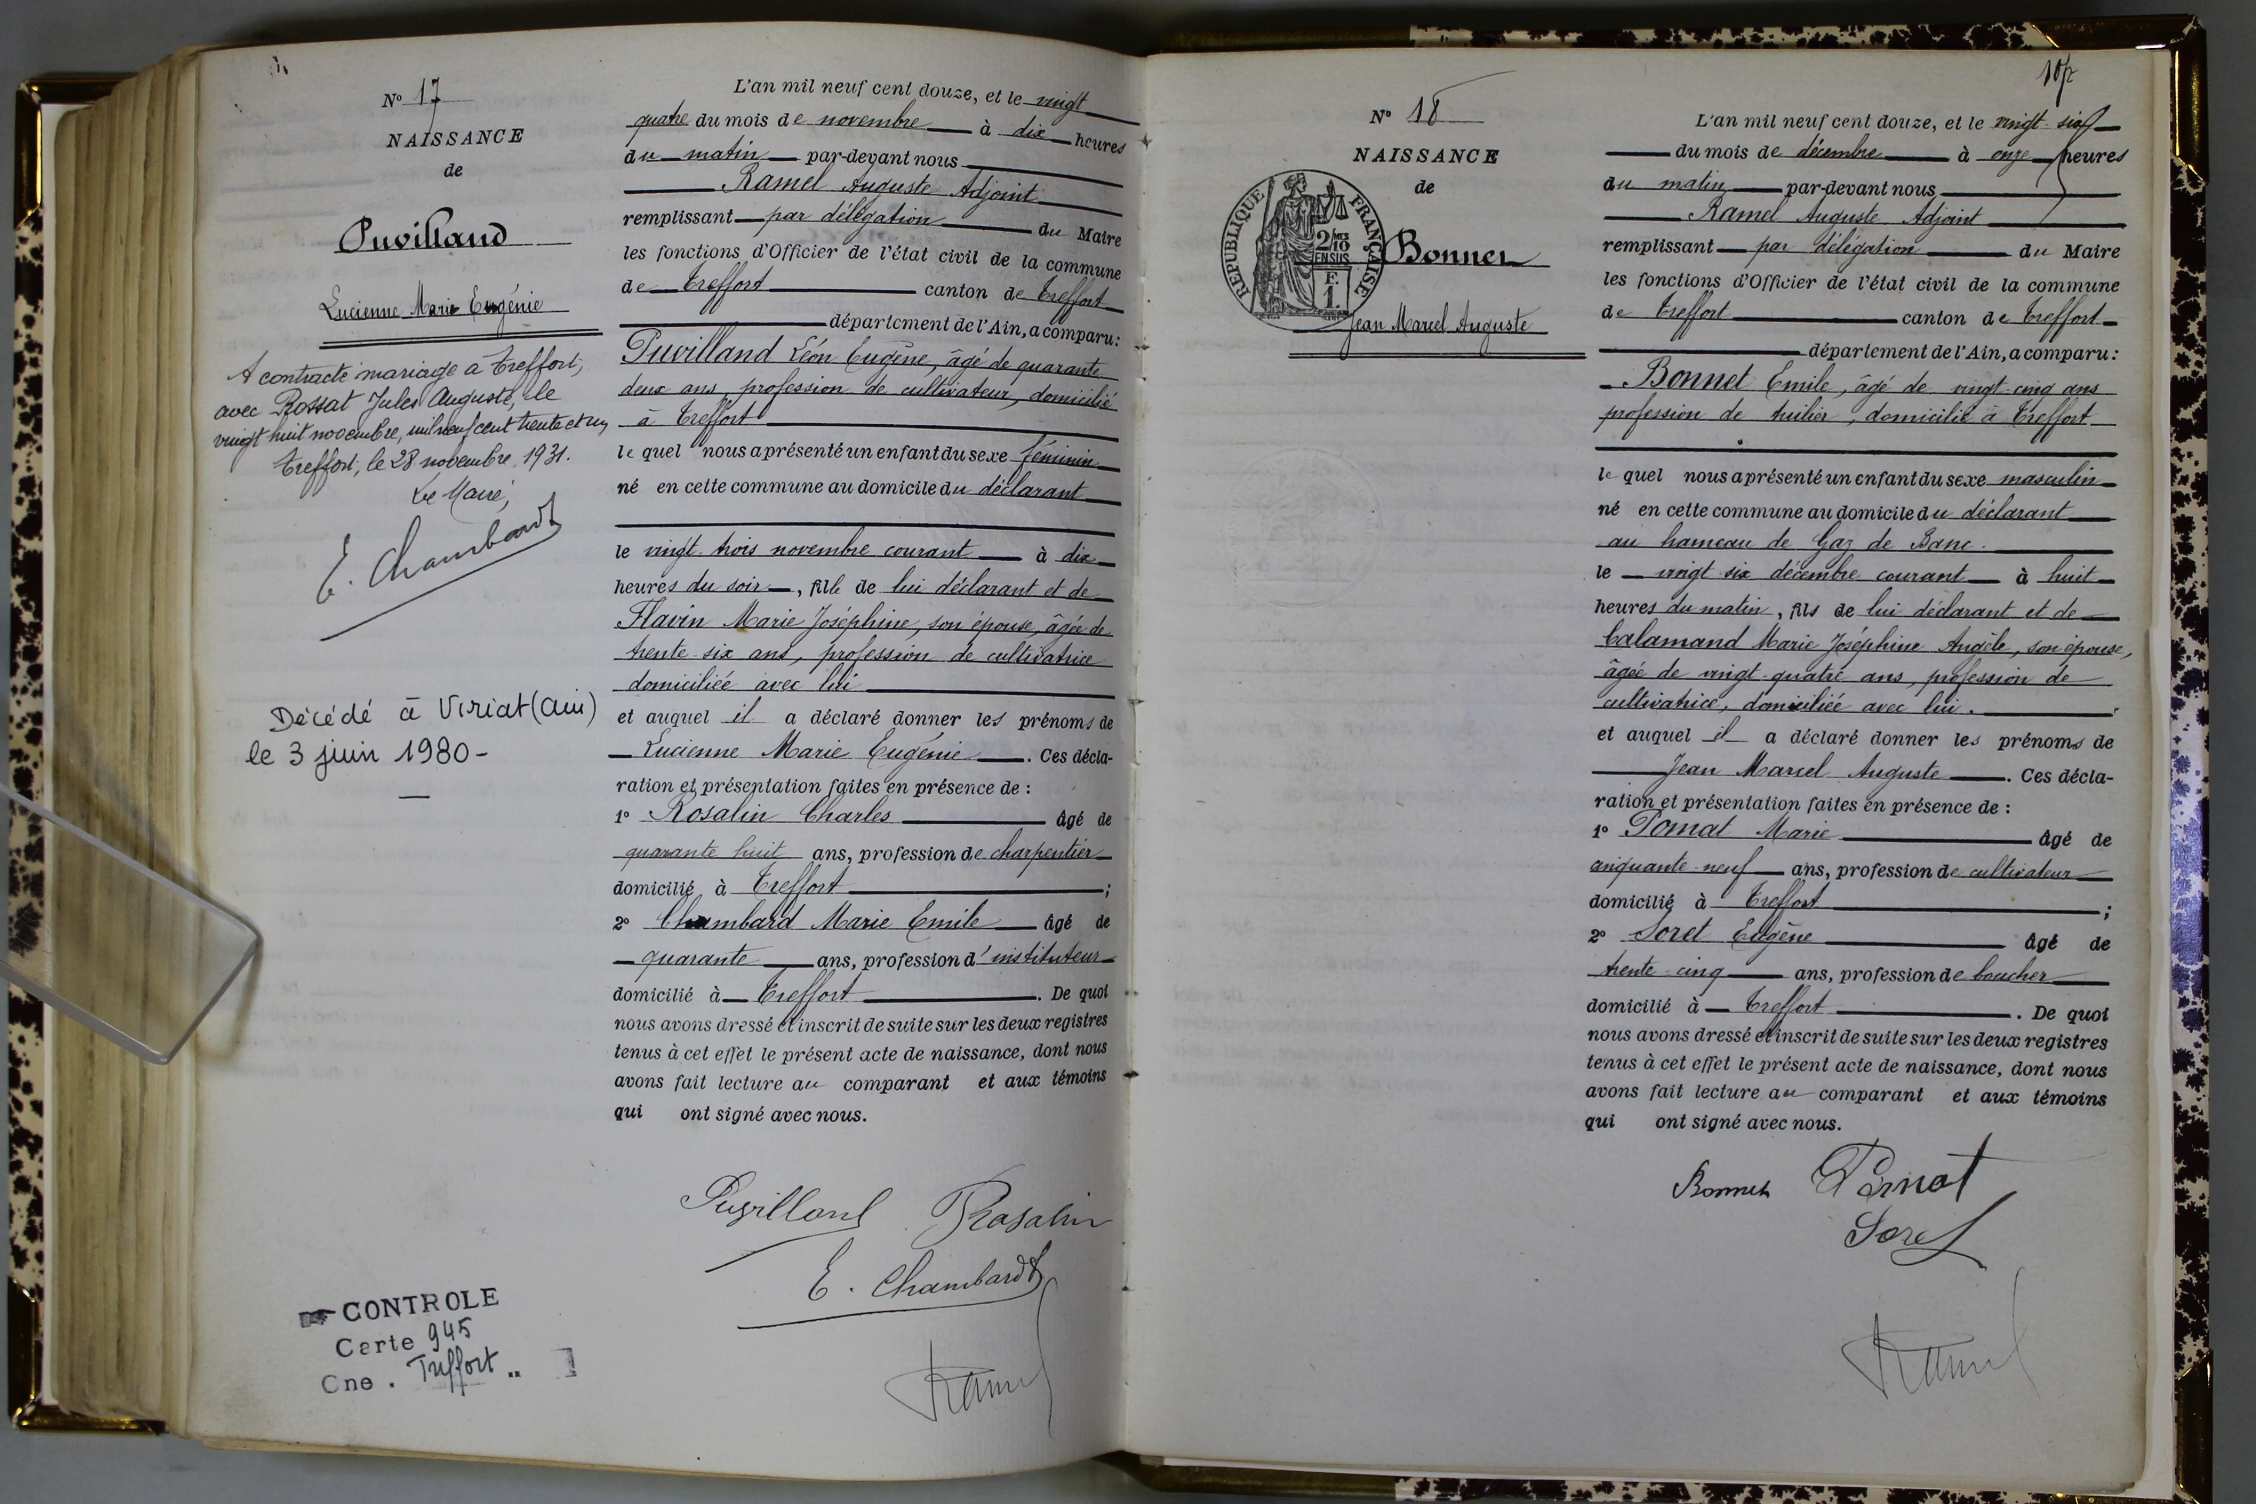 N° 17
NAISSANCE
de
Puvilland
Lucienne Marie Eugénie
A contracté mariage à Treffort,
avec Rossat Jules Auguste, le
vingt huit novembre, mil neuf cent trente et un,
Treffort, le 28 novembre 1931.
Le Maire,
E. Chambard
Décédé à Viriat (Ain)
le 3 juin 1980 -
CONTROLE
Carte 945
Cne . Treffort
L'an mil neuf cent douze, et le vingt
quatre du mois de novembre à dix heures
du matin par-devant nous
Ramel Auguste Adjoint
remplissant par délégation du Maire
les fonctions d'Officier de l'état civil de la commune
de Treffort canton de Treffort
département de l'Ain, a comparu :
Puvilland Léon Eugène, âgé de quarante
deux ans, profession de cultivateur, domicilié
à Treffort
le quel nous a présenté un enfant du sexe féminin
né en cette commune au domicile du déclarant
le vingt trois novembre courant à dix
heures du soir, fille de lui déclarant et de
Flavin Marie Joséphine, son épouse, âgée de
trente-six ans, profession de cultivatrice
domiciliée avec lui
et auquel il a déclaré donner les prénoms de
Lucienne Marie Eugénie. Ces décla-
ration et présentation faites en présence de :
1° Rosalin Charles âgé de
quarante huit ans, profession de charpentier
domicilié à Treffort ;
2° Chambard Marie Emile âgé de
quarante ans, profession d'instituteur
domicilié à Treffort. De quoi
nous avons dressé et inscrit de suite sur les deux registres
tenus à cet effet le présent acte de naissance, dont nous
avons fait lecture au comparant et aux témoins
qui ont signé avec nous.
Puvilland Rosalin
E. Chambard
Ramel
107
N° 18
NAISSANCE
de
REPUBLIQUE FRANÇAISE
2/10
EN SUS
F.
1.
Bonnet
Jean Marcel Auguste
L'an mil neuf cent douze, et le vingt-six
du mois de décembre à onze heures
du matin par-devant nous
Ramel Auguste Adjoint
remplissant par délégation du Maire
les fonctions d'Officier de l'état civil de la commune
de Treffort canton de Treffort
département de l'Ain, a comparu :
Bonnet Emile, âgé de vingt-cinq ans
profession de tuilier, domicilié à Treffort
le quel nous a présenté un enfant du sexe masculin
né en cette commune au domicile du déclarant
au hameau de Gaz de Banc.
le vingt-six décembre courant à huit
heures du matin, fils de lui déclarant et de
Calamand Marie Joséphine Angèle, son épouse,
âgée de vingt-quatre ans, profession de
cultivatrice, domiciliée avec lui.
et auquel il a déclaré donner les prénoms de
Jean Marcel Auguste. Ces décla-
ration et présentation faites en présence de :
1° Pomat Marie âgé de
cinquante-neuf ans, profession de cultivateur
domicilié à Treffort ;
2° Soret Eugène âgé de
trente-cinq ans, profession de boucher
domicilié à Treffort. De quoi
nous avons dressé et inscrit de suite sur les deux registres
tenus à cet effet le présent acte de naissance, dont nous
avons fait lecture au comparant et aux témoins
qui ont signé avec nous.
Bonnet
Soret
Ramel